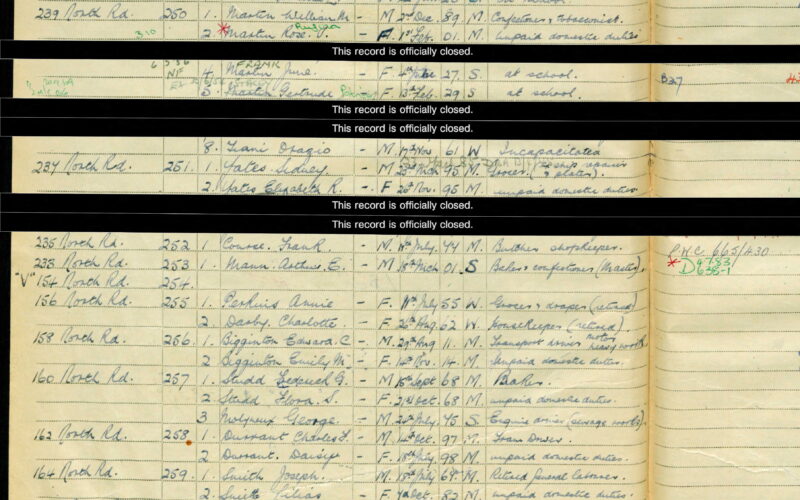 239 North Rd. 250 1. Martin William M - M 2nd Dec. 89 M. Confectioner & tobacconist.
310 * 2. Martin Rose V. - F. 1st Feb. 01 M. unpaid domestic duties
This record is officially closed.
4. Martin June. - F 27 S at school. B27
5 Martin Gertrude - F 13th Feb. 29 S at school.
This record is officially closed.
This record is officially closed.
8. Orazio - M 17th Nov. 61 W Incapacitated
237 North Rd. 251 1. Yates Sidney - M 95 M. Grocer.
2. Yates Elizabeth R. - F 20th Nov. 95 M. unpaid domestic duties.
This record is officially closed.
This record is officially closed.
235 North Rd. 252 1 Course. Frank - M. July. 44 M. Butcher shopkeeper.
233 North Rd. 253 1 Mann Arthur E. - M 18th Mch 01 S Baker & confectioner (Master).
* D 4783/6385-1
"V" 154 North Rd. 254.
156 North Rd. 255 1. Perkins Annie - F. 11th July 55 W. Grocer & draper (retired)
2. Darby. Charlotte. - F. 26th Aug. 62 W. Housekeeper (retired).
158 North Rd. 256 1. Bigginton Edward. C - M. 29th Aug. 11 M. Transport driver motor heavy
2 Bigginton Emily M. - F. 14th Nov. 14. M. Unpaid domestic duties.
160 North Rd. 257 1. Studd Frederick G. - M 15th Sept 68 M. Baker.
2. Studd Flora. S. - F. Oct. 68 M. unpaid domestic duties.
3 Molyneux George - M. 24th July. 45 S. Engine driver (sewage works).
162 North Rd. 258 1. Durrant Charles F. - M 14th Oct. 97 M. Tram Driver.
2 Durrant. Daisy - F. 18th July 98 M. unpaid domestic duties.
164 North Rd 259. 1. Smith Joseph. - M. 18th July 69. M. Retired general labourer.
2. Smith Lilias - F. 4th Oct. 82 M. unpaid domestic duties